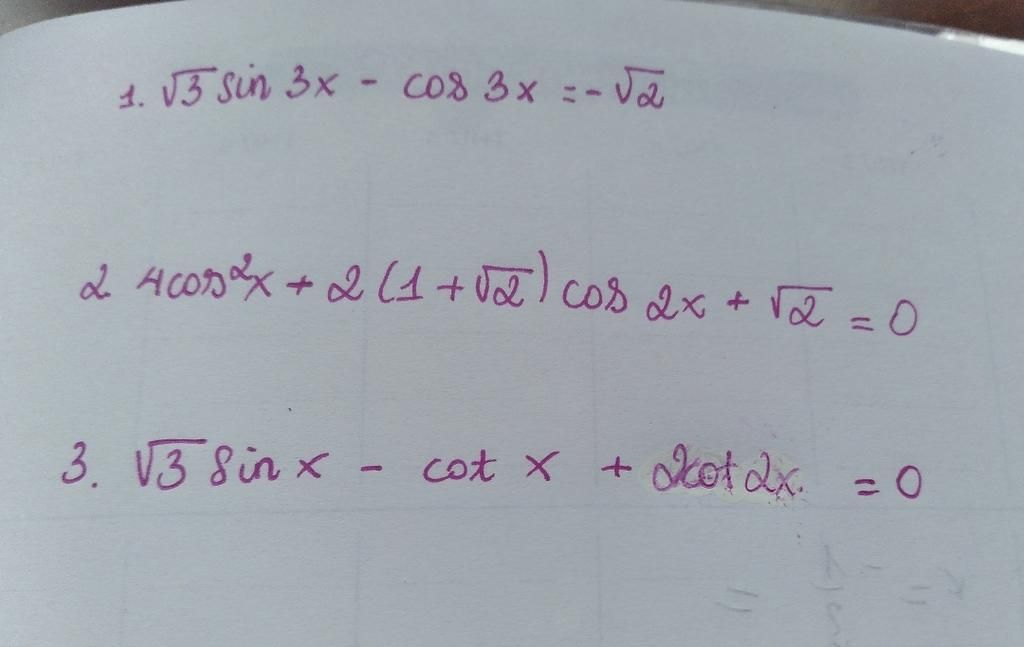 1. √3 sin 3x - cos 3x = -√2
2 4cos²x + 2(1 + √2) cos 2x + √2 = 0
3. √3 sin x - cot x + 2cot 2x. = 0